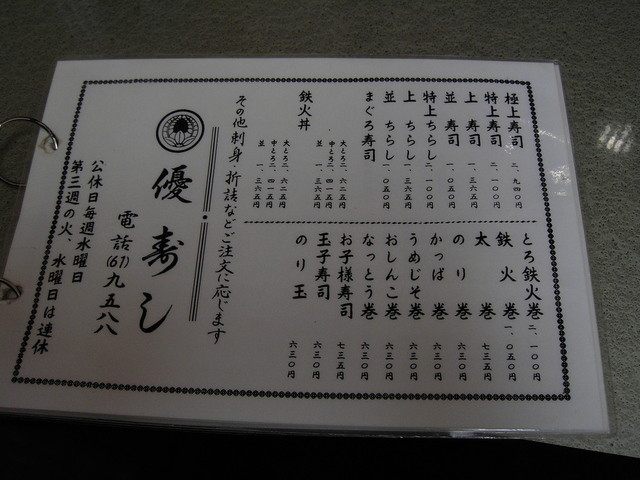 極上寿司 二、九四〇円
特上寿司 二、一〇〇円
上寿司 一、三六五円
並寿司 一、〇五〇円
特上ちらし 二、一〇〇円
上ちらし 一、三六五円
並ちらし 一、〇五〇円
まぐろ寿司
大とろ 二、六二五円
中とろ 二、四一五円
並 一、三六五円
鉄火丼
大とろ 二、六二五円
中とろ 二、四一五円
並 一、三六五円
とろ鉄火巻 二、一〇〇円
鉄火巻 一、〇五〇円
太巻 七三五円
のり巻 六三〇円
かっぱ巻 六三〇円
うめじそ巻 六三〇円
おしんこ巻 六三〇円
なっとう巻 六三〇円
お子様寿司 七三五円
玉子寿司 六三〇円
のり玉 六三〇円
その他刺身・折詰などご注文に応じます
優寿し
電話(61)九五八八
公休日毎週水曜日
第三週の火、水曜日は連休